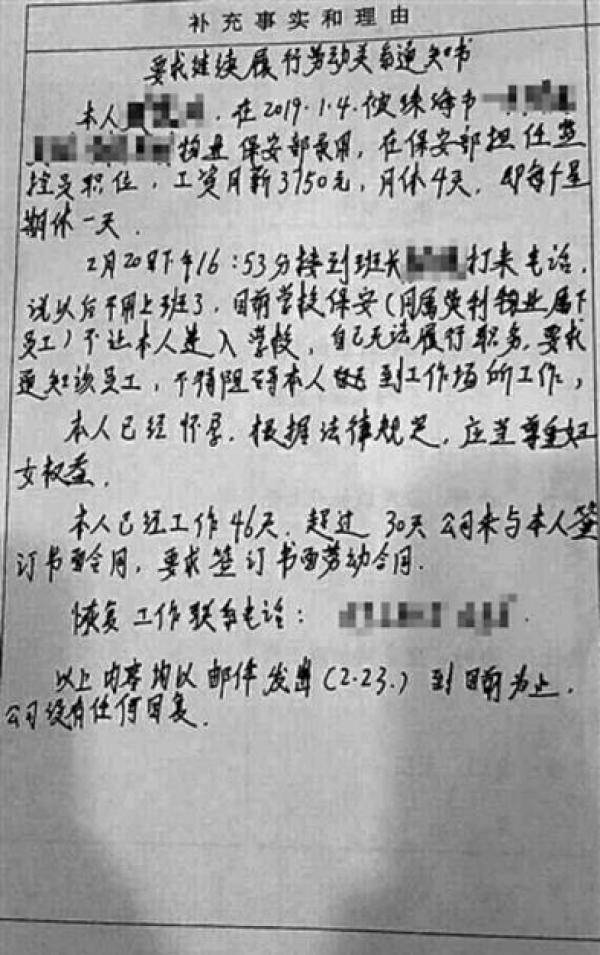 补充事实和理由
要求继续履行劳动关系通知书
本人 , 在2019.1.4.被珠海市
物业保安部录用, 在保安部担任监
控员职位, 工资月薪3750元, 月休4天, 即每个星
期休一天.
2月20日下午16:53分接到班长 打来电话,
说以后不用上班了, 目前学校保安(同属 利物业属下
员工)不让本人进入学校, 自己无法履行职务, 要求
通知该员工, 不得阻碍本人 到工作场所工作,
本人已经怀孕. 根据法律规定, 应当尊重妇
女权益.
本人已经工作46天. 超过30天公司未与本人签
订书面合同, 要求签订书面劳动合同.
恢复工作联系电话:
以上内容均以邮件发出(2.23.)到目前为止,
公司没有任何回复.